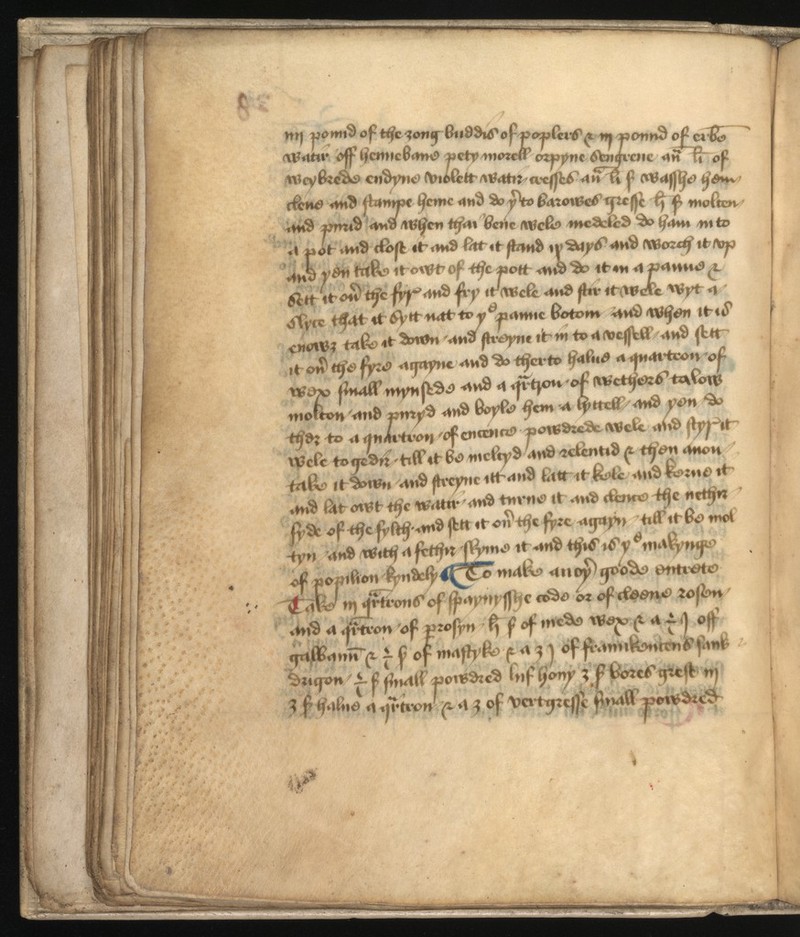 iiij pound of the ȝong buddis of poplers & iij pound of erbe
watir off hennebane pety morell orpyne sengrene an̄ li of
weybrede endyue violett watir cresses an̄ li ſ wasshe hem
clene and stampe heme and do yͭ to barowes gresse li ſ molten
and purid and when thai bene wele medeled do ham in to
a pot and close it and latt it stand ij days and worch it vp
and yen take it owt of the pott and do it in a panne &
sett it on̄ the fyr and fry it wele and stir it wele wyt a
slyce that it sytt nat to yͤ panne botom and when it is
enowȝ take it down and streyne it in to a vessell and sett
it on̄ the fyre agayne and do therto halue a quartron of
wex small mynsede and a qrtron of wethers talow
molton and puryd and boyle hem a lyttell and yen do
ther to a quartron of encence powdrede wele and styr it
wele togedir till it be meltyd and relentid & then anon
take it down and streyne itt and latt it kele and kerue it
and lat owt the watir and turne it and clence the nethir
syde of the fylth and sett it on̄ the fyre agayn till it be mol
tyn and with a fethir skyme it and this is yͤ makynge
of popilion kyndely To make anoyͬ goode entrete
Take iij qrtrons of spaynysshe code or of cleene rosen
and a qrtron of perosyn li ſ of mede wex & a ℥ j off
galbanū & ℥ ſ of mastyke & a ʒ j of frankentens sank
dragon ℥ ſ small powdred hony ʒ ſ bores grese iij
ʒ ſ halue a qrtron & a ʒ of vertgresse small powdred
38